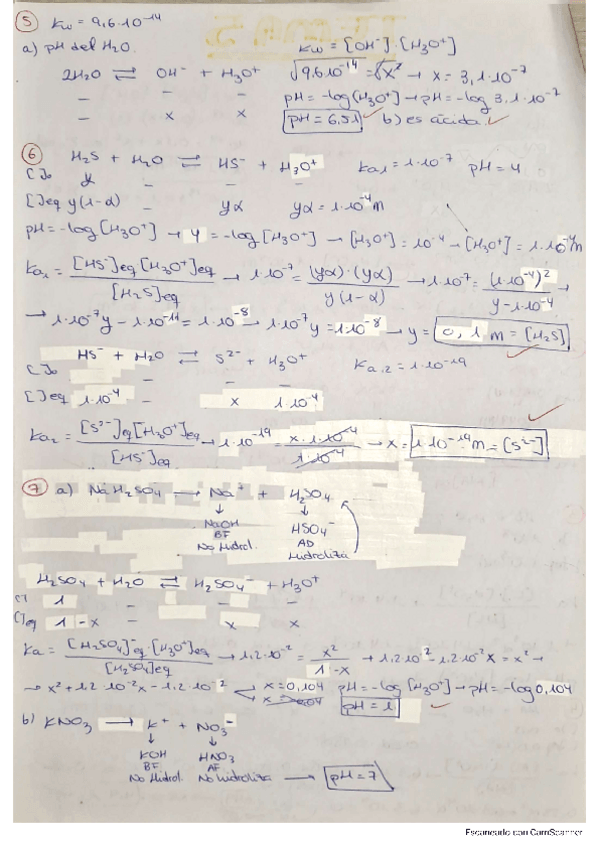 5 Kw = 9,6·10⁻¹⁴
a) pH del H₂O. Kw = [OH⁻]·[H₃O⁺]
2H₂O ⇌ OH⁻ + H₃O⁺ √9,6·10⁻¹⁴ = √x² → x = 3,1·10⁻⁷
– – – pH = -log[H₃O⁺] → pH = -log 3,1·10⁻⁷
– x x pH = 6,51 ✓ b) es ácida. ✓
6 H₂S + H₂O ⇌ HS⁻ + H₃O⁺ Ka₁ = 1·10⁻⁷ pH = 4
[ ]₀ y – – –
[ ]eq y(1-α) – yα yα = 1·10⁻⁴ m
pH = -log[H₃O⁺] → 4 = -log[H₃O⁺] → [H₃O⁺] = 10⁻⁴ → [H₃O⁺] = 1·10⁻⁴ m
Ka₁ = [HS⁻]eq[H₃O⁺]eq / [H₂S]eq → 1·10⁻⁷ = (yα)·(yα) / y(1-α) → 1·10⁻⁷ = (1·10⁻⁴)² / y-1·10⁻⁴ →
→ 1·10⁻⁷y - 1·10⁻¹¹ = 1·10⁻⁸ → 1·10⁻⁷y = 1·10⁻⁸ → y = 0,1 m = [H₂S] ✓
HS⁻ + H₂O ⇌ S²⁻ + H₃O⁺ Ka,2 = 1·10⁻¹⁹
[ ]₀ – – –
[ ]eq 1·10⁻⁴ – x 1·10⁻⁴
Ka₂ = [S²⁻]eq[H₃O⁺]eq / [HS⁻]eq → 1·10⁻¹⁹ = x·1·10⁻⁴ / 1·10⁻⁴ → x = 1·10⁻¹⁹ m = [S²⁻] ✓
7 a) NaH₂SO₄ → Na⁺ + H₂SO₄
↓ ↓
NaOH HSO₄⁻
BF AD
No Hidrol. Hidroliza
H₂SO₄ + H₂O ⇌ H₂SO₄⁻ + H₃O⁺
1 – – –
[ ]eq 1-x – x x
Ka = [H₂SO₄]⁻eq·[H₃O⁺]eq / [H₂SO₄]eq → 1,2·10⁻² = x² / 1-x → 1,2·10⁻² - 1,2·10⁻²x = x² →
→ x² + 1,2·10⁻²x - 1,2·10⁻² x = 0,104 pH = -log[H₃O⁺] → pH = -log 0,104
pH = 1 ✓
b) KNO₃ → K⁺ + NO₃⁻
↓ ↓
KOH HNO₃
BF AF
No Hidrol. No hidroliza → pH = 7
Escaneado con CamScanner